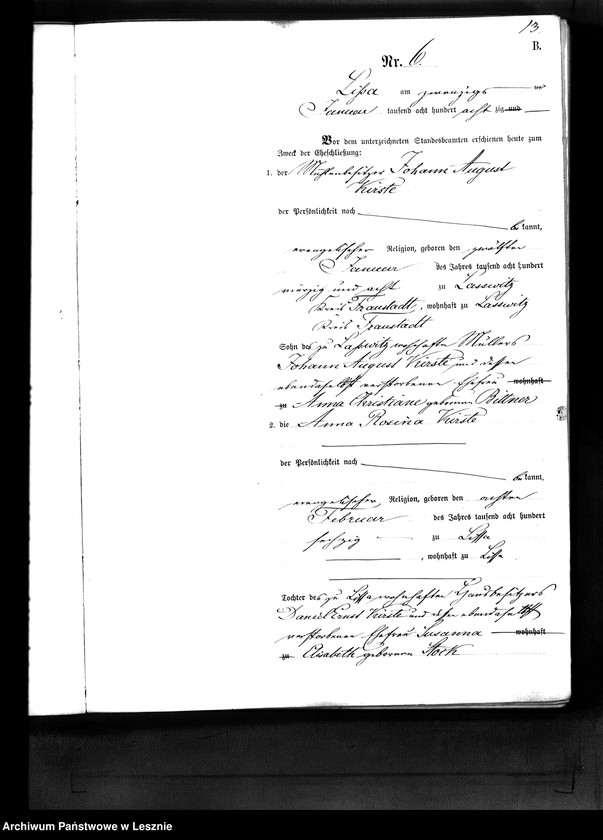 13.
B.
Nr. 6.
Lissa am zwanzigsten
Januar tausend acht hundert achtzig und
Vor dem unterzeichneten Standesbeamten erschienen heute zum
Zweck der Eheschließung:
1. der Mühlenbesitzer Johann August
Kirste
der Persönlichkeit nach
bekannt,
evangelischer Religion, geboren den zwölften
Januar des Jahres tausend acht hundert
vierzig und acht zu Lasswitz
Kreis Fraustadt, wohnhaft zu Lasswitz
Kreis Fraustadt
Sohn des zu Lasswitz wohnhaften Müllers
Johann August Kirste und dessen
ebendaselbst verstorbenen Ehefrau wohnhaft
zu Anna Christiane geborenen Bittner
2. die Anna Rosina Kirste
der Persönlichkeit nach
bekannt,
evangelischer Religion, geboren den achten
Februar des Jahres tausend acht hundert
sechzig zu Lissa
, wohnhaft zu Lissa
Tochter des zu Lissa wohnhaften Handbesitzers
Daniel Ernst Kirste und dessen ebendaselbst
verstorbenen Ehefrau Susanna wohnhaft
zu Elisabeth geborenen Stock
Archiwum Państwowe w Lesznie